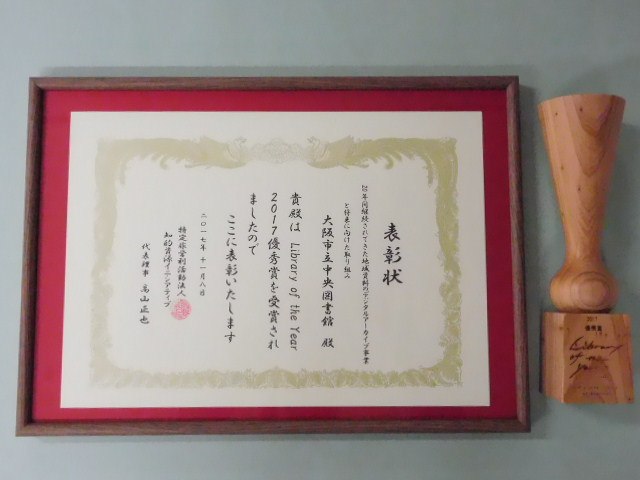 表彰状
22年間継続されてきた地域資料のデジタルアーカイブ事業
と将来に向けた取り組み
大阪市立中央図書館 殿
貴殿は Library of the Year
2017優秀賞を受賞され
ましたので
ここに表彰いたします
二〇一七年 十一月八日
特定非営利活動法人
知的資源イニシアティブ
代表理事 高山正也
2017
優秀賞
Library
of the
Year